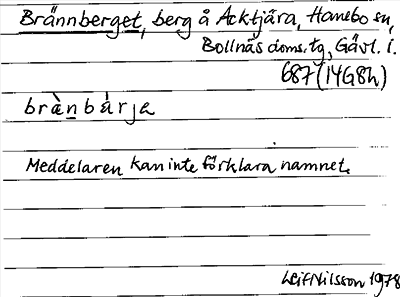 Brännberget, berg å Acktjära, Hanebo sn,
Bollnäs doms. tg, Gävl. l.
687 (14G8h)
brànbàrja
Meddelaren kan inte förklara namnet.
Leif Nilsson 1978